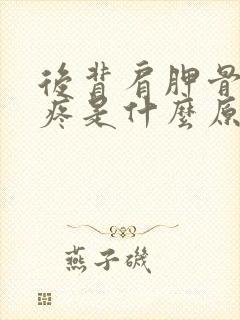 後背肩胛骨
疼是什麼原
燕子磯